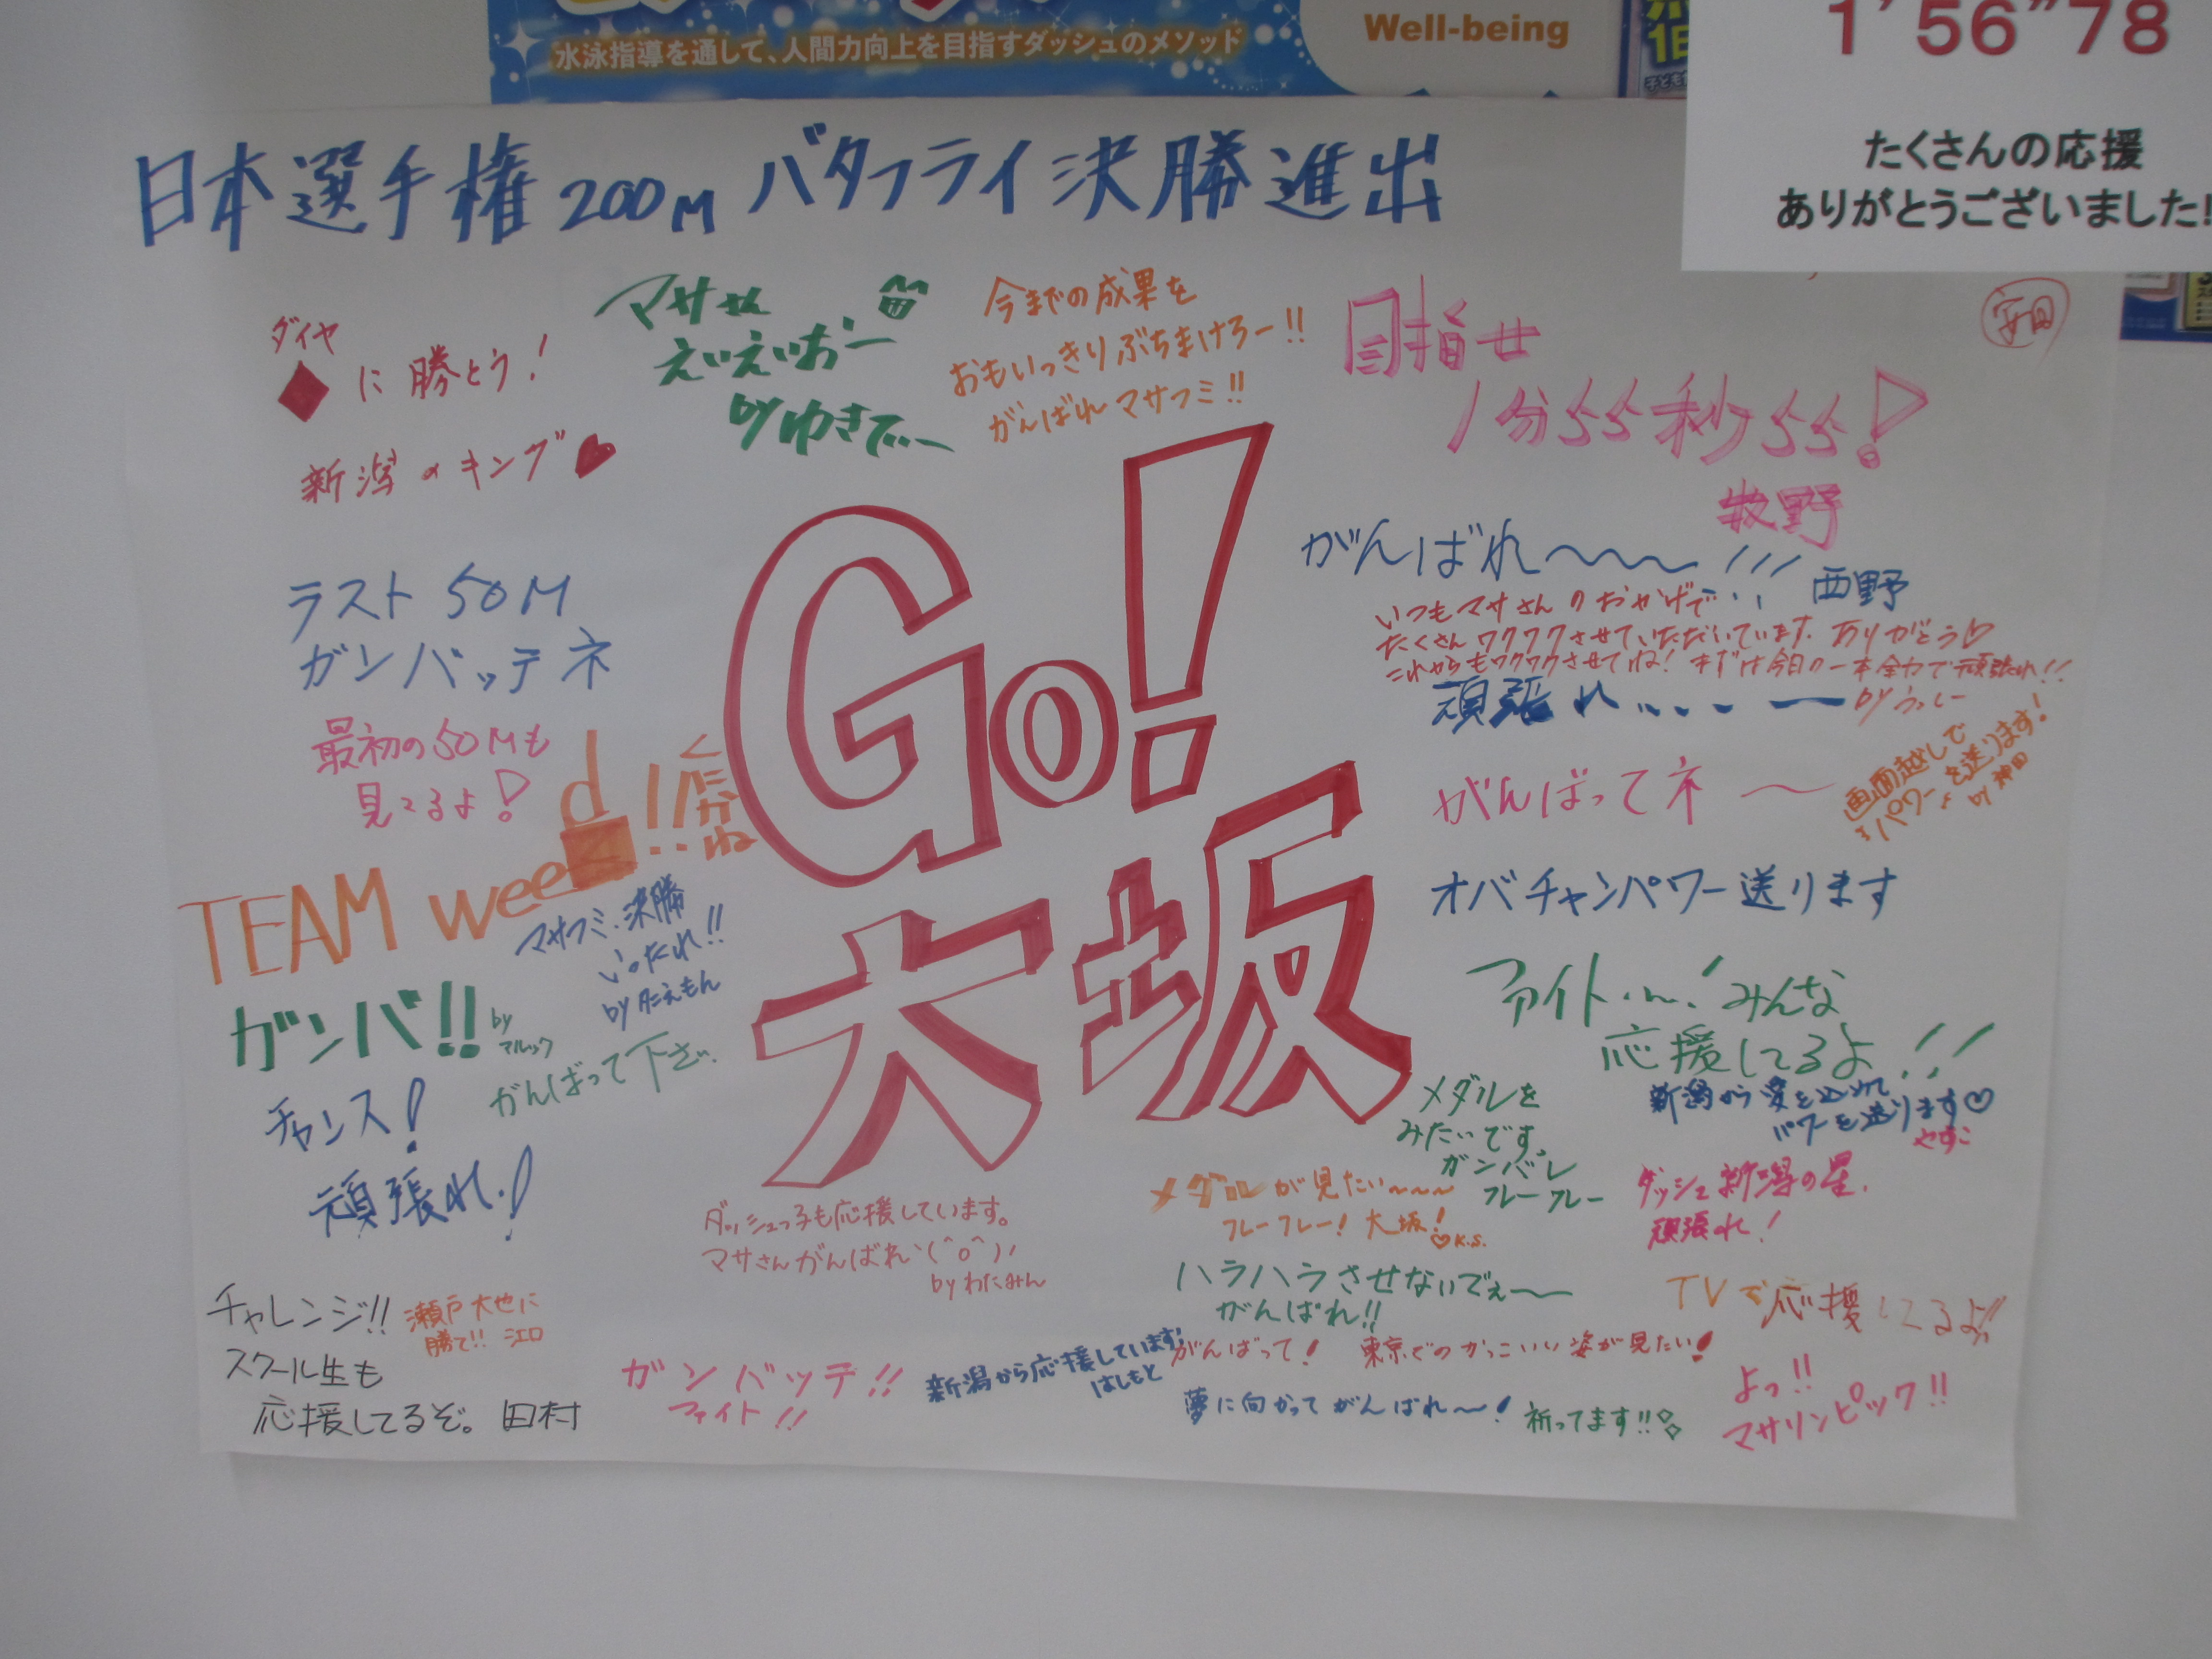 水泳指導を通して、人間力向上を目指すダッシュのメソッド
Well-being
1'56"78
たくさんの応援
ありがとうございました!!
日本選手権200Mバタフライ決勝進出
安田
ダイヤ
に勝とう!
新潟のキング
マササん
えいえいおー
by ゆきで
今までの成果を
おもいっきりぶちまけろー!!
がんばれマサフミ!!
目指せ
1分55秒55!
牧野
がんばれ〜〜〜!!!
西野
いつもマサさんのおかげで
たくさんワクワクさせていただいています。ありがとう♡
これからもワクワクさせてね!まずは今日の一本全力で頑張れ!!
by うっしー
頑張れ
ラスト50M
ガンバッテネ
最初の50Mも
見てるよ!
Go!
大坂
がんばってネ〜
画面越しで
パワーを送ります!
by 神田
TEAM weed!!
くにかね
マサフミ、決勝
いったれ!!
by タニえもん
オバチャンパワー送ります
ガンバ!!
by
マルック
がんばって下さい
ファイト!みんな
応援してるよ!!
チャンス!
頑張れ!
メダルを
みたいです。
ガンバレ
フレーフレー
新潟から愛を込めて
パワーを送ります♡
やすこ
メダルが見たい〜〜〜
フレーフレー!大坂!
♡K.S.
ダッシュ新潟の星、
頑張れ!
ダッシュっ子も応援しています。
マサさんがんばれヽ(^o^)ノ
by わたみん
ハラハラさせないでぇ〜
がんばれ!!
TVで応援してるよ!!
チャレンジ!!
スクール生も
応援してるぞ。田村
瀬戸大也に
勝て!! 江口
ガンバッテ!!
ファイト!!
新潟から応援しています!
はしもと
がんばって!
東京でのかっこいい姿が見たい!
夢に向かってがんばれ〜!
祈ってます!!
よっ!!
マサリンピック!!